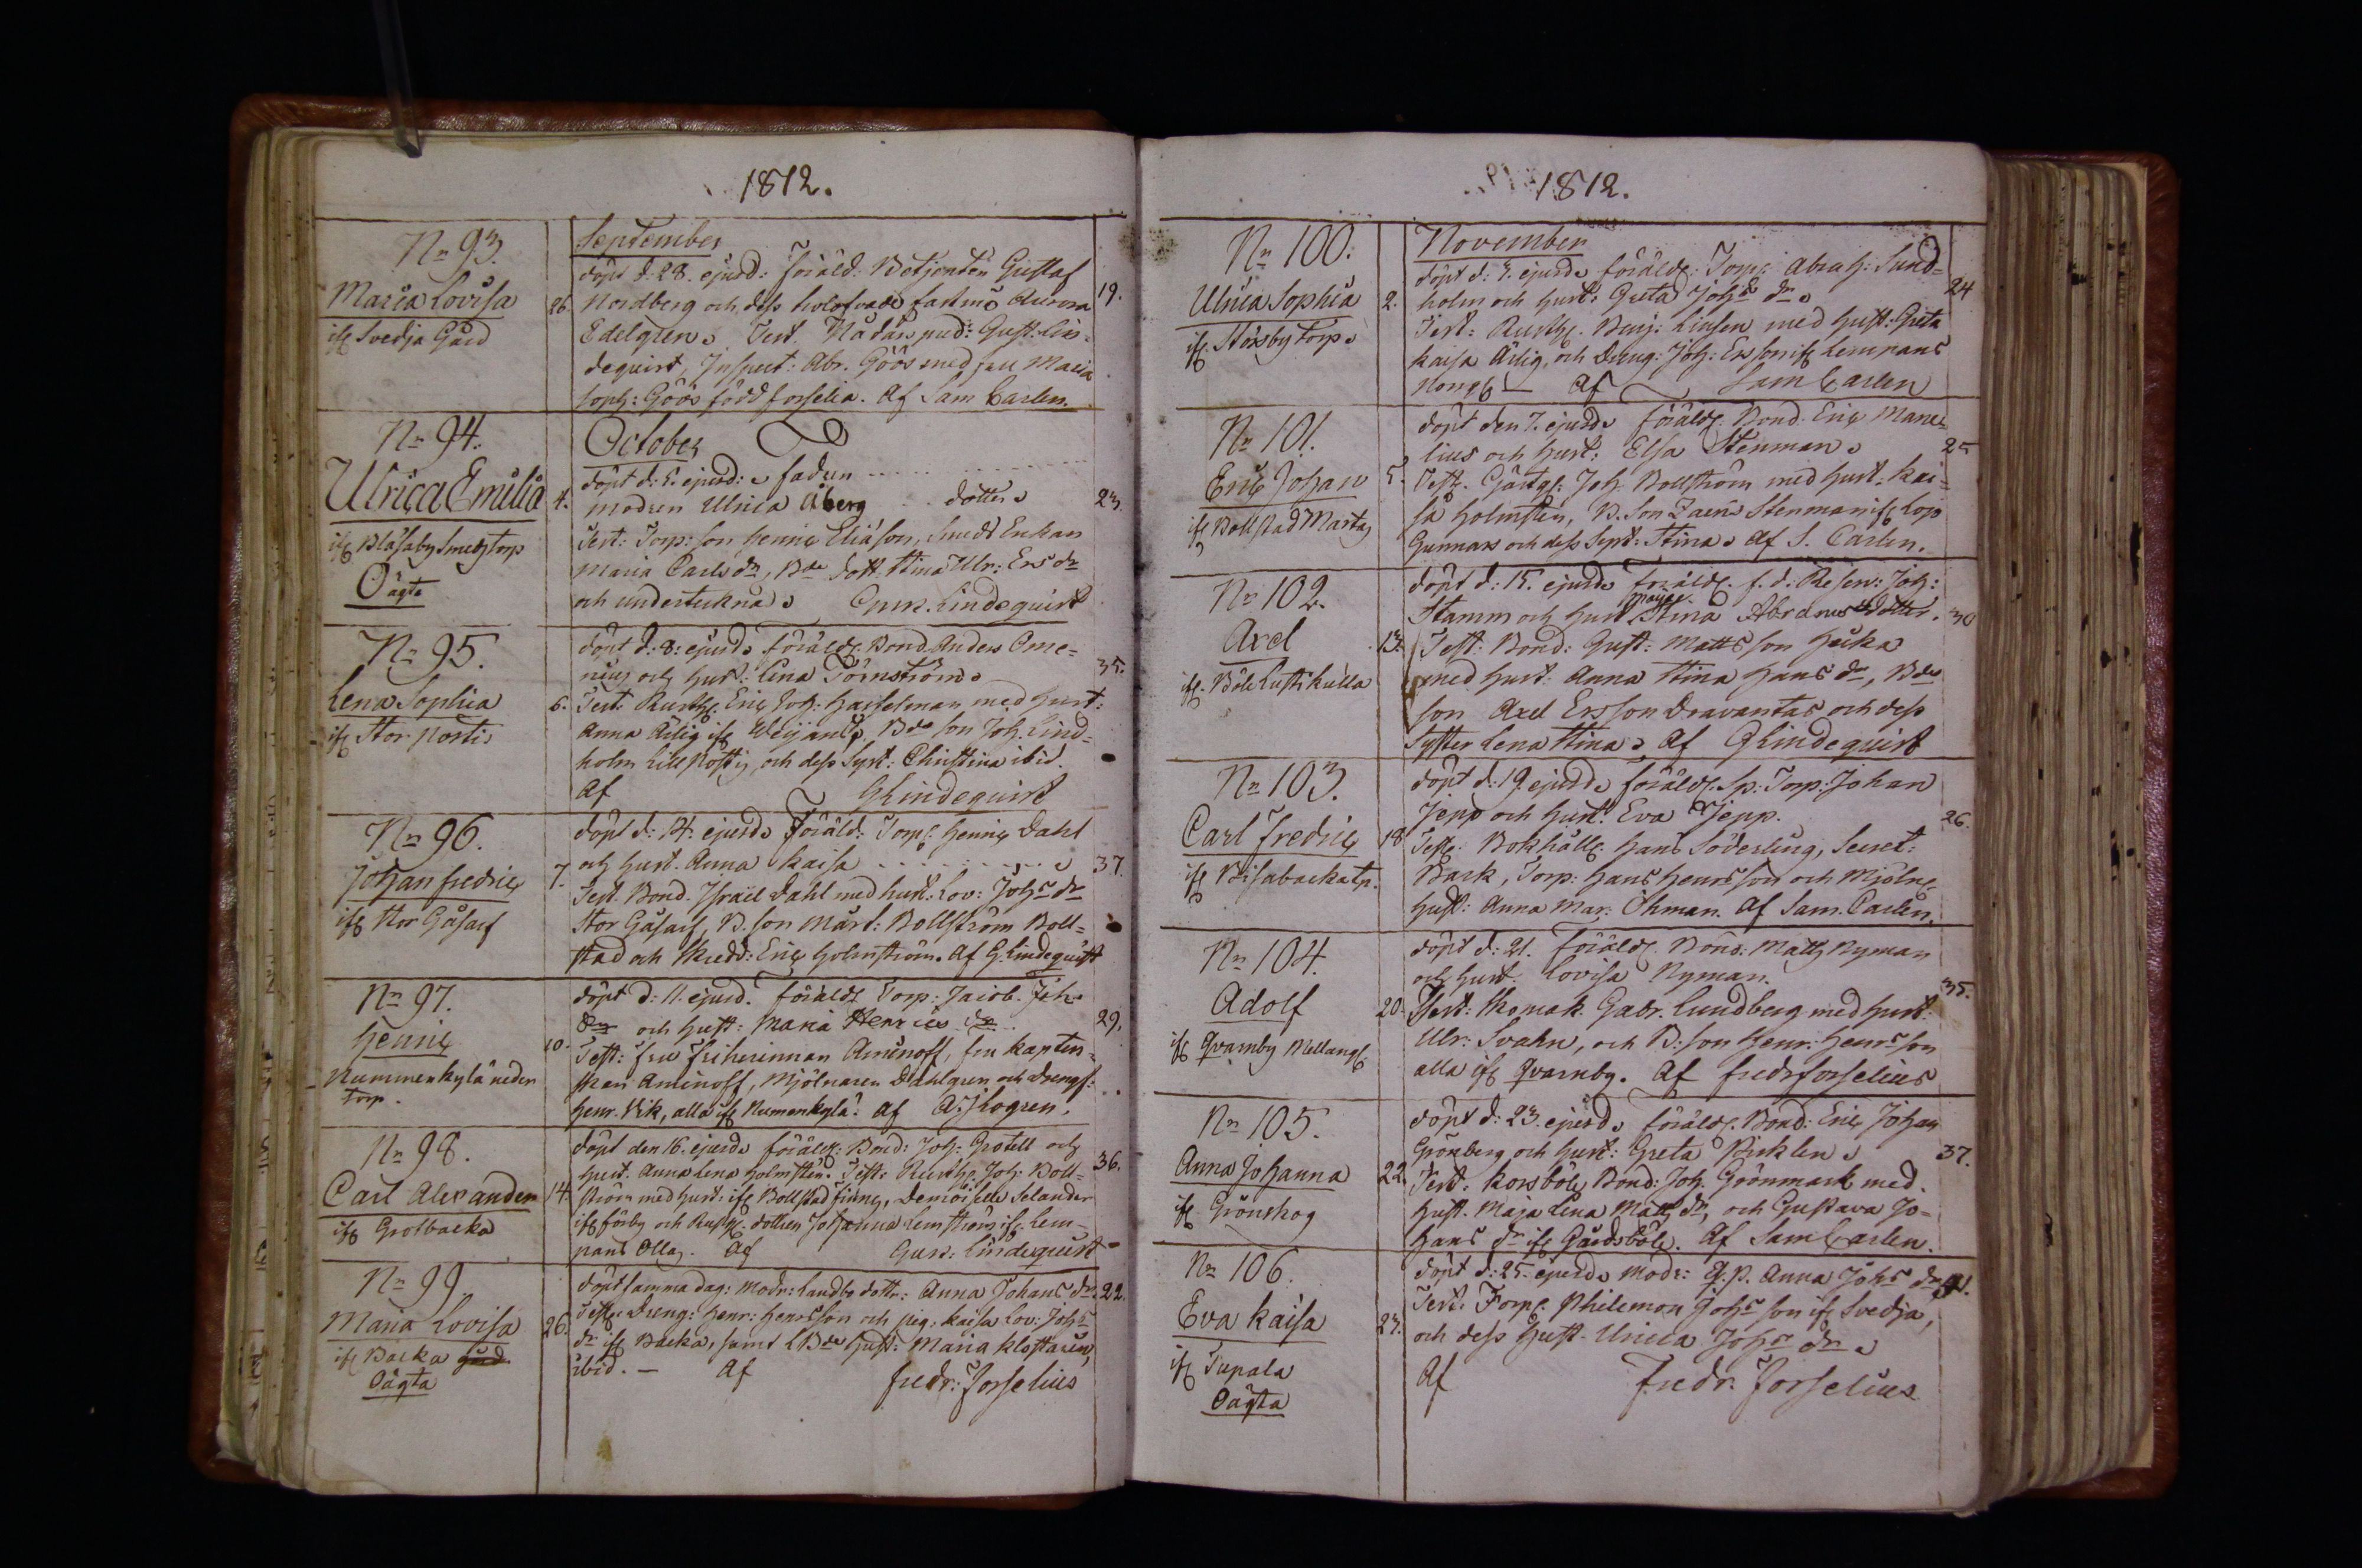 1812.
No 93.
Maria Lovisa
ifr Svedja Gård
26.
September
döpt d: 28. ejusd: föräld: Betjenten Gustaf
Nordberg och dess trolofvade fästmö Aurora
Edelgren. Test. Gust: Lin-
dequist, Inspect: Abr. Göös med fru Maria
Soph: Göös född Forselia. Af Sam Carlen.
19.
No 94.
Ulrica Emilia
ifr Blåsaby Smedztorp
Oägta
4.
October
döpt d: 5. ejusd: fadren
modren Ulrica Åberg dotter
Test: Torp: son Henric Eliason, Smeds Enkan
Maria Carls dr, Bde dott. Stina Ulr: Ers dr
och undertecknad Lindequist
23.
No 95.
Lena Sophia
ifr Stor Postis
6.
döpt d: 8: ejusd föräldr Bond. Anders Ome-
nius och hust: Lena Törnström
Test: Rusth: Eric Joh: Hasselman med hust:
Anna Ärlig ifr Bde son Joh. Lind-
holm Lill Postis, och dess Syst: Christina ibid.
Af GLindequist
35.
No 96.
Johan Fredric
ifr Stor Gåsars
7.
döpt d: 14. ejusd Föräld: Torp: Henric Dahl
och hust. Anna Kaisa
Test. Bond. Israel Dahl med hust. Lov: Johs dr
Stor Gåsars, B. son Mårt: Bollström Boll-
stad och Skredd: Eric Holmström. Af G. Lindequist
37.
No 97.
Henric
Nummenkylä neder
torp.
10.
döpt d: 11. ejusd. föräldr Torp: Jacob Joh
och hust: Maria Henrics dr
Test: fru Friherinnan Aminoff, fru Kapten-
skan Aminoff, Mjölnaren Dahlgren och Drengs:
Henr. Vik, alla ifr Numenkylä. Af A. Skogren.
29.
No 98.
Carl Alexander
ifr Grotbacka
14.
döpt den 16. ejusd föräldr: Bond: Joh: Grotell och
hust: Anna Lena Holmsten. Test: Rusth: Joh: Boll-
ström med hust: ifr Bollstad Finnes, Demoiselle Selander
ifr Förby och Rusth: dottren Johanna Lemström ifr Lem-
pans Ollas. Af Gust: Lindequist
36.
No 99.
Maria Lovisa
ifr Backa gård
Oägta
26.
döpt samma dag: Modr: Landbo dottr: Anna Johans dr
Test: Dreng: Henr: Henrsson och pig: Kaisa Lov: Johs
dr ifr Backa, samt LBde hust: Maria Klostarin,
ibid. — Af Fredr: Forselius
22.
1812.
No 100.
Ulrica Sophia
ifr Störsby torp
2.
November
döpt d: 3. ejusd föräldr: Torp: Abrah: Sund-
holm och hust: Greta Johs dr
Test: Rusth: Benj: Linsen med hust: Greta
Kaisa Ärlig, och Dreng: Joh: Ersson ifr Lempans
Af Sam Carlen
24
No 101.
Eric Johan
ifr Bollstad Martas
5.
döpt den 7. ejusd föräldr: Bond. Eric Mane-
lius och hust: Elsa Stenman
Test. Gästg: Joh Bollström med hust. Kai-
sa Holmsten, B. son Stenman ifr Lojo
Gunnars och dess Syst: Stina. Af S. Carlen.
25
No 102.
Axel
ifr. Böle Lustikulla
13.
döpt d: 15. ejusd Föräldr. f. d. Reserv: Joh:
Maja
Stamm och hust Stina Abrams dotter.
Test: Bond: Gust: Matts son Heika
med hust: Anna Stina Hans dr, Bde
son Axel Ersson Dravantas och dess
Syster Lena Stina. Af GLindequist
30
No 103.
Carl Fredric
ifr Bisabacka tp.
18
döpt d: 19. ejusd föräldr: Sp: Torp: Johan
Jepp och hust: Eva Jepp.
Test: Bokhåll: Hans Söderling, Secret:
Bark, Torp: Hans Henrsson och Mjöln:
hust: Anna Mar: Öhman. Af Sam. Carlen.
26.
No 104.
Adolf
ifr Qvarnby Mellang:
20.
döpt d: 21. föräldr. Bond: Matts Nyman
och hust: Lovisa Nyman.
Test: Skomak. Gabr. Lundberg med hust:
Ulr: Svahn, och B: son Henr: Henrs son
alla ifr Qvarnby. Af Fredr Forselius
35.
No 105.
Anna Johanna
ifr Grönskog
22.
döpt d: 23. ejusd föräldr: Bond: Eric Johan
Grönberg och hust: Greta Picklen
Test. Korsböle Bond: Joh. Grönmark med
hust. Maja Lena Matts dr, och Gustava Jo-
hans dr ifr Gårdsböle. Af Sam Carlen.
37.
No 106.
Eva Kaisa
ifr Tupala
Oägta
23.
döpt d: 25. ejusd Modr: q. p. Anna Johs dr
Test: Torp: Philemon Johs son ifr Svedja,
och dess hust. Ulrica Johs dr
Af Fredr. Forselius